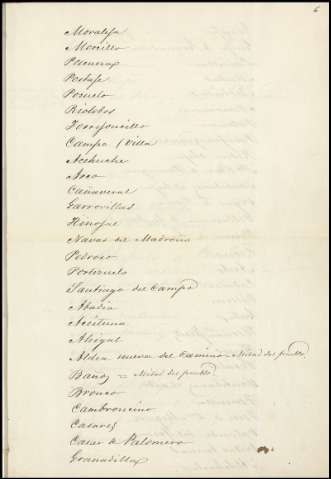 6
Moraleja
Morcillo
Pescueza
Portaje
Pozuelo
Riolobos
Torrejoncillo
Campo (Villa
Acehuche
Arco
Cañaveral
Garrovillas
Hinojal
Navas del Madroño
Pedroso
Portezuelo
Santiago del Campo
Abadia
Aceituna
Ahigal
Aldea nueva del Camino = Mitad del pueblo
Baños = Mitad del pueblo
Bronco
Cambroncino
Casares
Casar de Palomero
Granadilla